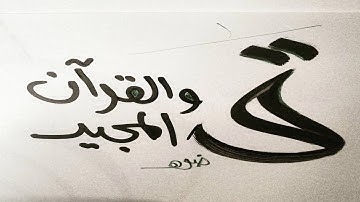 ق والقرآن
المجيد